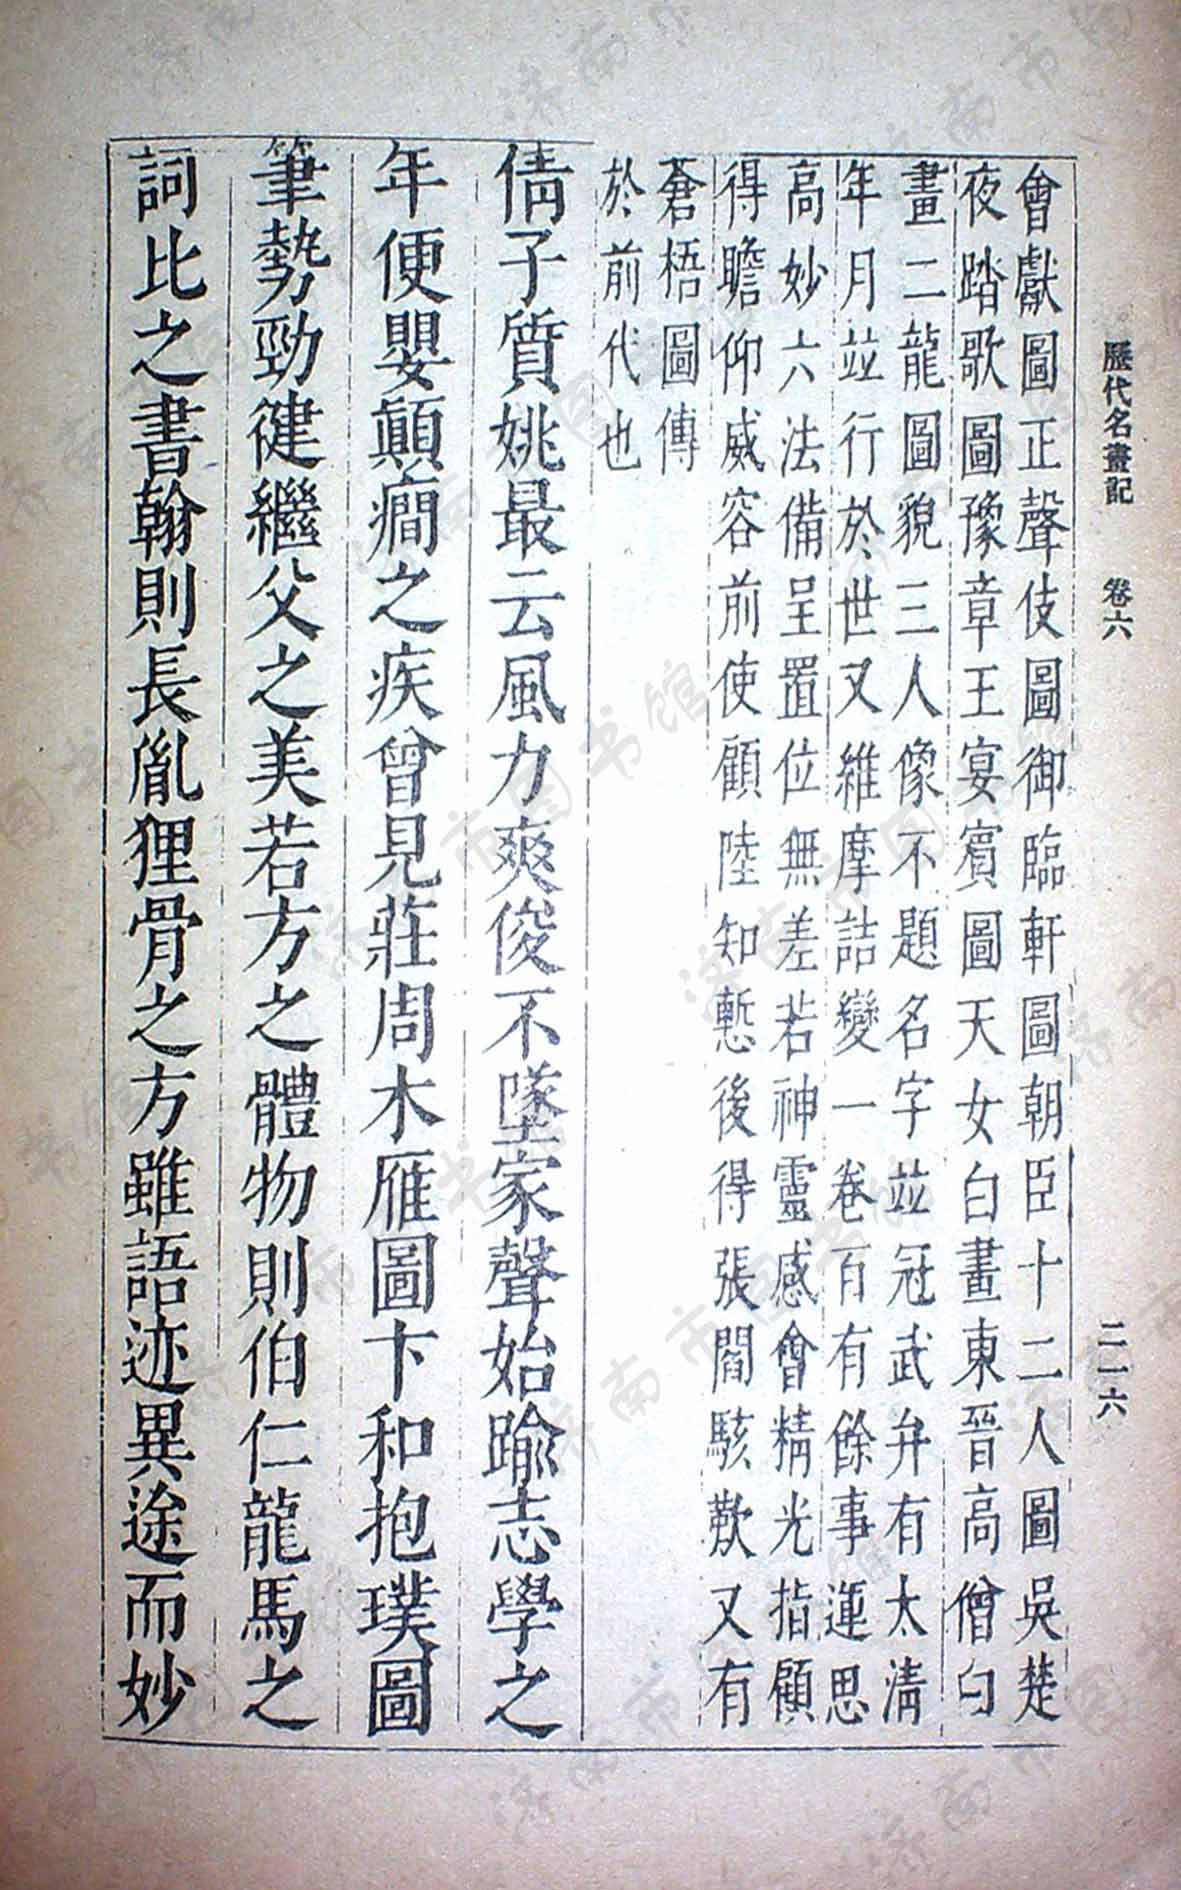 歷代名畫記 卷六 二一六
會獻圖正聲伎圖御臨軒圖朝臣十二人圖吳楚
夜踏歌圖豫章王宴賓圖天女白畫東晉高僧白
畫二龍圖貌三人像不題名字並冠武弁有太清
年月並行於世又維摩詰變一卷百有餘事運思
高妙六法備呈置位無差若神靈感會精光指顧
得瞻仰威容前使顧陸知慙後得張閻駭歎又有
蒼梧圖傳
於前代也
倩子質姚最云風力爽俊不墜家聲始踰志學之
年便嬰顛癇之疾曾見莊周木雁圖卞和抱璞圖
筆勢勁健繼父之美若方之體物則伯仁龍馬之
詞比之書翰則長胤狸骨之方雖語迹異途而妙
济南市图书馆